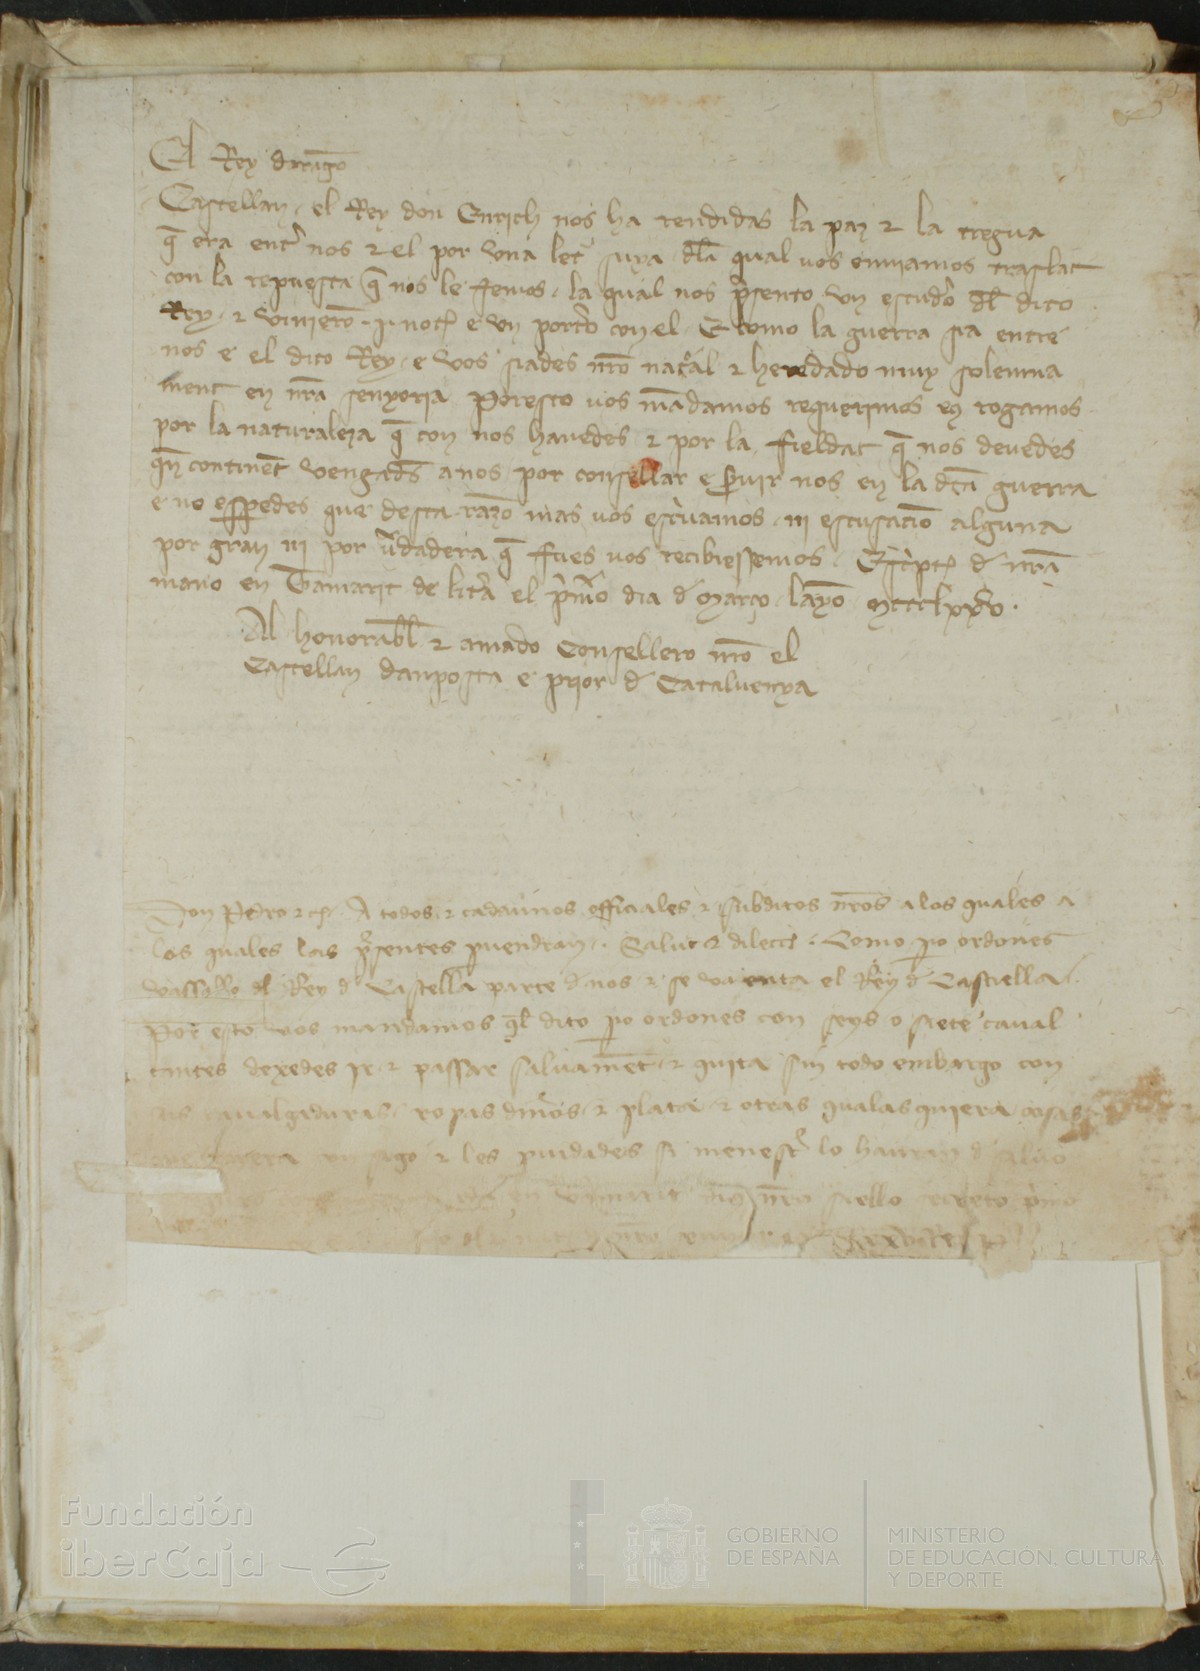 El Rey darago
Castellan, el Rey don Enrich nos ha rendidas la paz & la tregua
q̄ era entr̄ nos & el por una letr̄ suya dl̄a qual vos enviamos traslat
con la repuesta q̄ nos le ffemos, la qual nos p̄sento un escudr̄o dl̄ dito
Rey, & viniero I not e un port̄o con el. E como la guerra sia entre
nos e el dito Rey, e vos siades nr̄o natal & heredado muy solemna
ment en nr̄a senyoria. Por esto vos mādamos requerimos en rogamos
por la naturaleza q̄ con nos havedes & por la fieldat q̄ nos devedes
qn̄ continēt vengads̄ a nos por consellar e s̄vuir nos en la dc̄a guerra
e no esperedes que desta razo mas vos escrivamos, ni escusacio alguna
por gran ni por v̄dadera q̄ fues vos recibiessemos. Escp̄t d nr̄a
mano en Tamarit de litr̄a el p̄mo dia d Março, layo
Al honorabl̄ & amado Consellero nr̄o el
Castellan danposta e prior d Cataluenya
Don Pedro &c. A todos & cadaunos officiales & subditos nr̄os a los quales a
los quales las p̄sentes pvendran. Salut & dilecc. Como po ordones
vassallo del Rey d Castella parte d nos & se va enta el Rey d Castiella
Por esto vos mandamos ql̄ dito po ordones con seys o siete caval
cantes dexedes ir & passar salvamēt & quita sin todo embargo con
sus cavalgaduras, ropas dinos & plata & otras qualas quiera cosas
& les puidades si menestr̄ lo hauran d salvo
en nr̄o siello secreto p̄mo
Fundación
iberCaja
GOBIERNO
DE ESPAÑA
MINISTERIO
DE EDUCACIÓN, CULTURA
Y DEPORTE